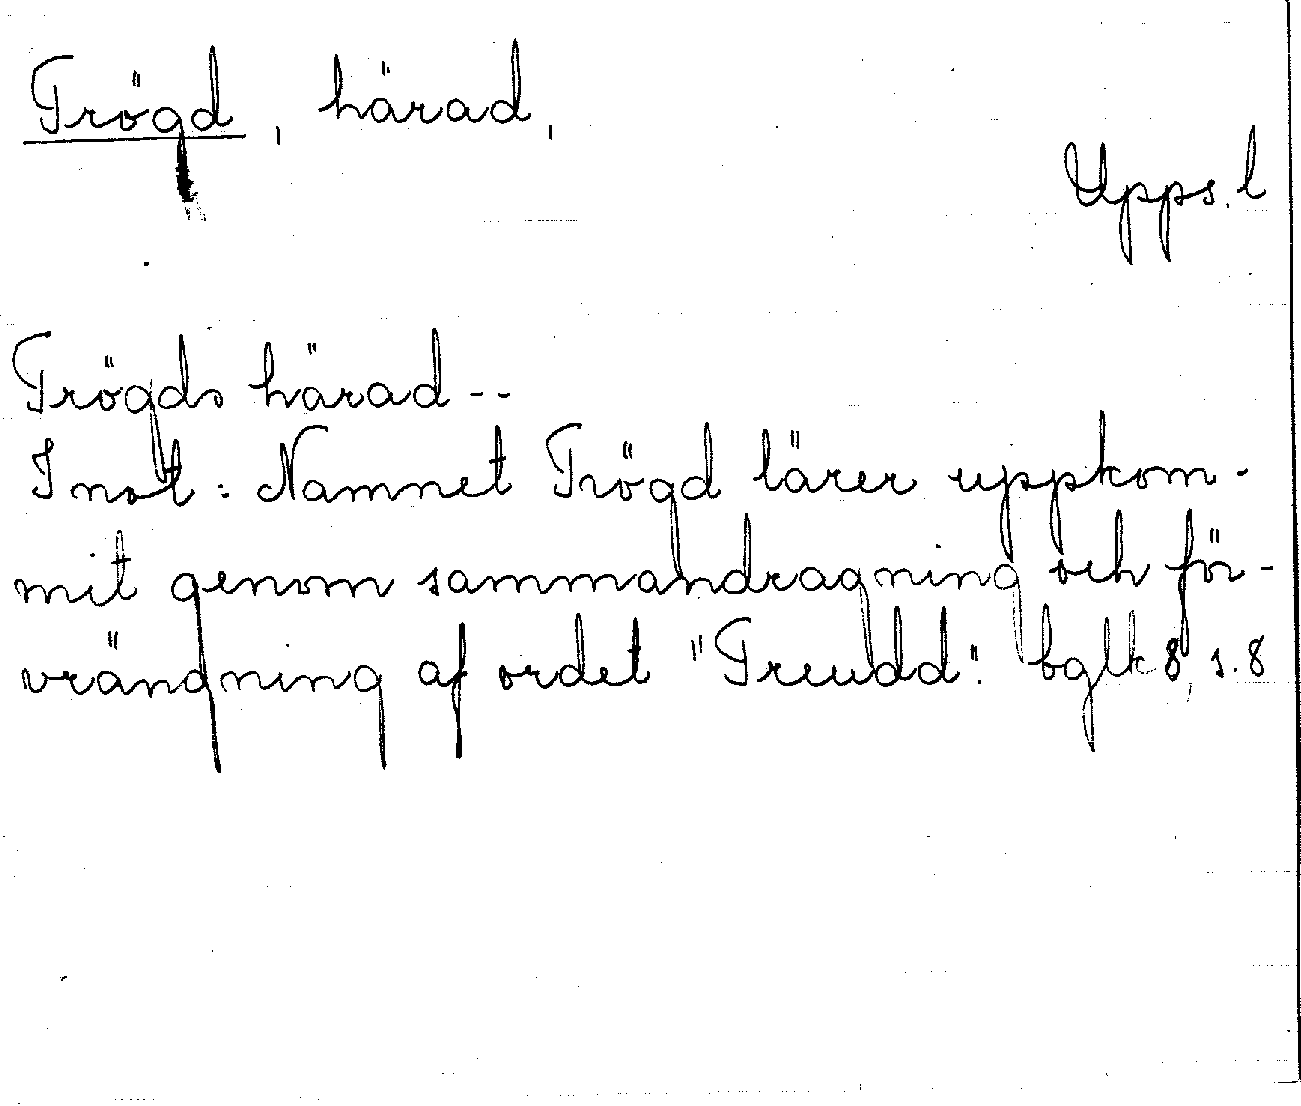 Trögd, härad,
Upps. l
Trögds härad --
I not: Namnet Trögd lärer uppkom-
mit genom sammandragning och för-
vrängning af ordet "Treudd". bglk 8, s. 8